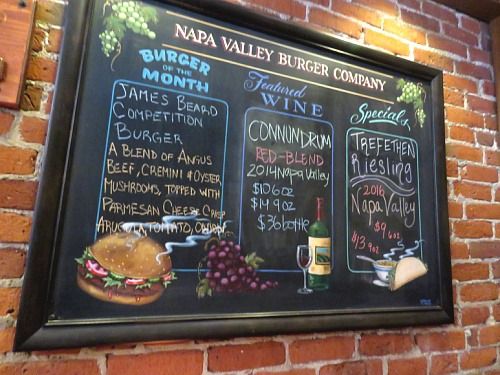 NAPA VALLEY BURGER COMPANY
BURGER
OF THE
MONTH
JAMES BEARD
COMPETITION
BURGER
A BLEND OF ANGUS
BEEF, CREMINI & OYSTER
MUSHROOMS, TOPPED WITH
PARMESAN CHEESE CRISP
ARUGULA, TOMATO,
Featured
WINE
CONNUNDRUM
RED-BLEND
2014 Napa Valley
$10 6oz
$14 9oz
$36 bottle
Specials
TREFETHEN
Riesling
2016
Napa Valley
$9 6oz
$13 9oz